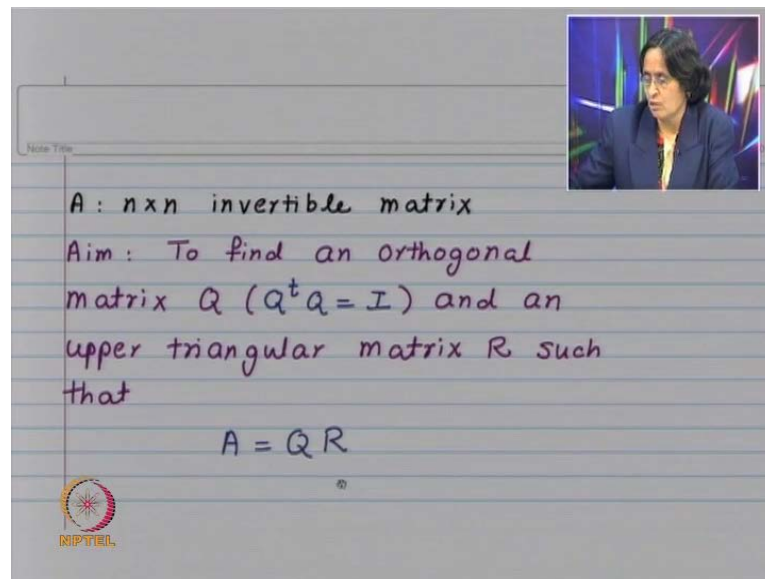 Note Title
A : n x n invertible matrix
Aim : To find an orthogonal
matrix Q (Q^t Q = I) and an
upper triangular matrix R such
that
A = Q R
NPTEL